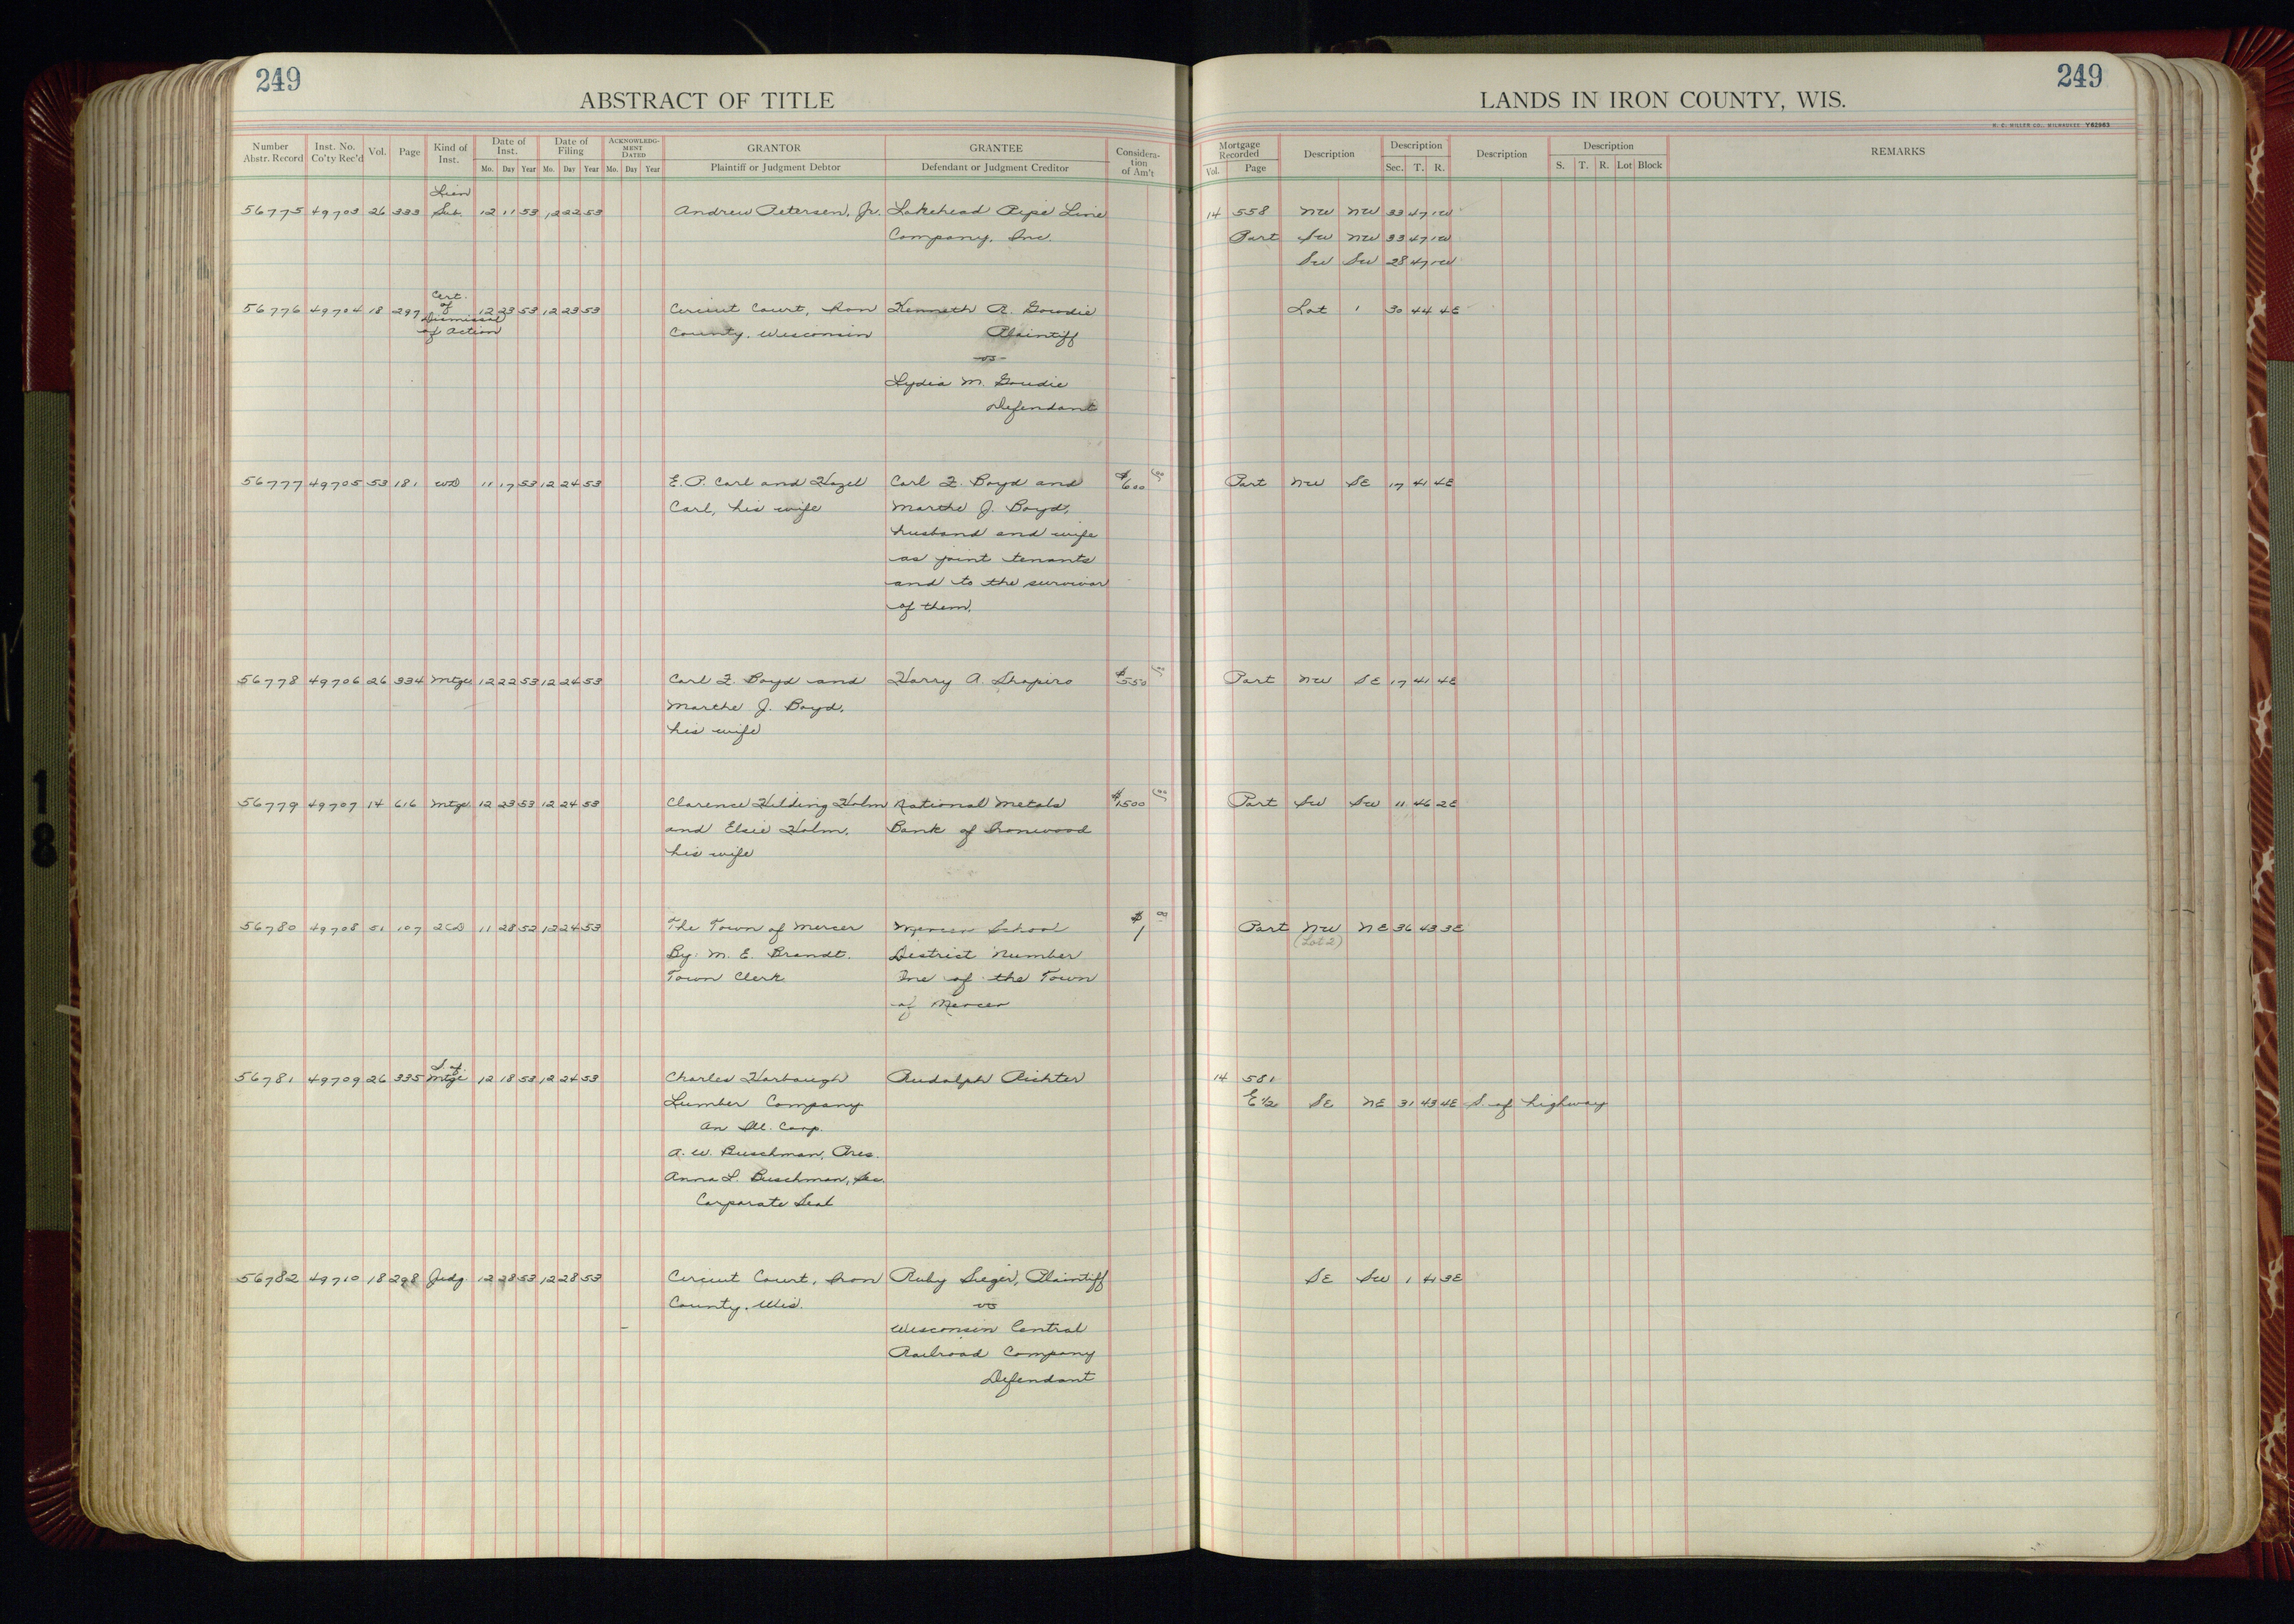 249
ABSTRACT OF TITLE
LANDS IN IRON COUNTY, WIS.
249
H. C. MILLER CO., MILWAUKEE Y62963
Number Abstr. Record | Inst. No. Co'ty Rec'd | Vol. | Page | Kind of Inst. | Date of Inst. Mo. Day Year | Date of Filing Mo. Day Year | ACKNOWLEDGMENT DATED Mo. Day Year | GRANTOR Plaintiff or Judgment Debtor | GRANTEE Defendant or Judgment Creditor | Consideration of Am't | Mortgage Recorded Vol. Page | Description | Description Sec. T. R. | Description | Description S. T. R. Lot Block | REMARKS
Lien
56775 49703 26 333 Sat. 12 11 53 12 22 53 Andrew Petersen, Jr. Lakehead Pipe Line 14 558 NW NW 33 47 1W
Company, Inc. Part SW NW 33 47 1W
SW SW 28 47 1W
Cert.
of
56776 49704 18 297 Dismissal 12 23 53 12 23 53 Circuit Court, Iron Kenneth R. Goudie Lot 1 30 44 4E
of Action County, Wisconsin Plaintiff
-vs-
Lydia M. Goudie
Defendant
56777 49705 53 181 WD 11 17 53 12 24 53 E. P. Carl and Hazel Carl F. Boyd and $600 Part NW SE 17 41 4E
Carl, his wife Marthe J. Boyd,
husband and wife
as joint tenants
and to the survivor
of them.
56778 49706 26 334 Mtge 12 22 53 12 24 53 Carl F. Boyd and Harry A. Shapiro $550 Part NW SE 17 41 4E
Marthe J. Boyd,
his wife
56779 49707 14 616 Mtge 12 23 53 12 24 53 Clarence Hilding Holm National Metals $1500 Part SW SW 11 46 2E
and Elsie Holm, Bank of Ironwood
his wife
56780 49708 51 107 2CD 11 28 52 12 24 53 The Town of Mercer Mercer School $1 00 Part NW NE 36 43 3E
(Lot 2)
By: M. E. Brandt. District Number
Town Clerk One of the Town
of Mercer
S. of
56781 49709 26 335 Mtge 12 18 53 12 24 53 Charles Harbaugh Rudolph Richter 14 581
Lumber Company E 1/2 SE NE 31 43 4E S. of highway
An Ill. Corp.
A. W. Buschman, Pres.
Anna L. Buschman, Sec.
Corporate Seal
56782 49710 18 298 Judg 12 28 53 12 28 53 Circuit Court, Iron Ruby Sieger, Plaintiff SE SW 1 41 3E
County, Wis. vs
Wisconsin Central
Railroad Company
Defendant
18